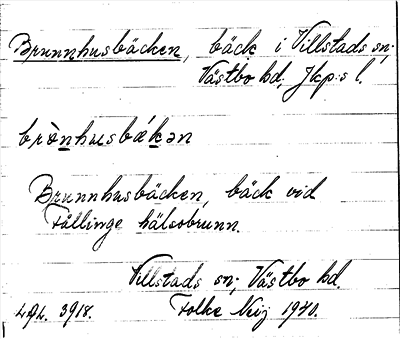 Brunnhusbäcken, bäck i Villstads sn;
Västbo hd; Jkp:s l.
brònhusbákən
Brunnhusbäcken, bäck vid
Tållinge hälsobrunn.
Villstads sn; Västbo hd.
LAL. 3918. Folke Neij 1940.